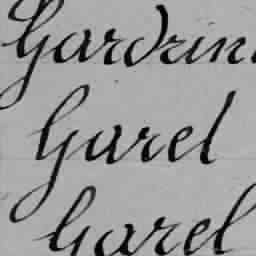 Gardrin
Garel
Garel